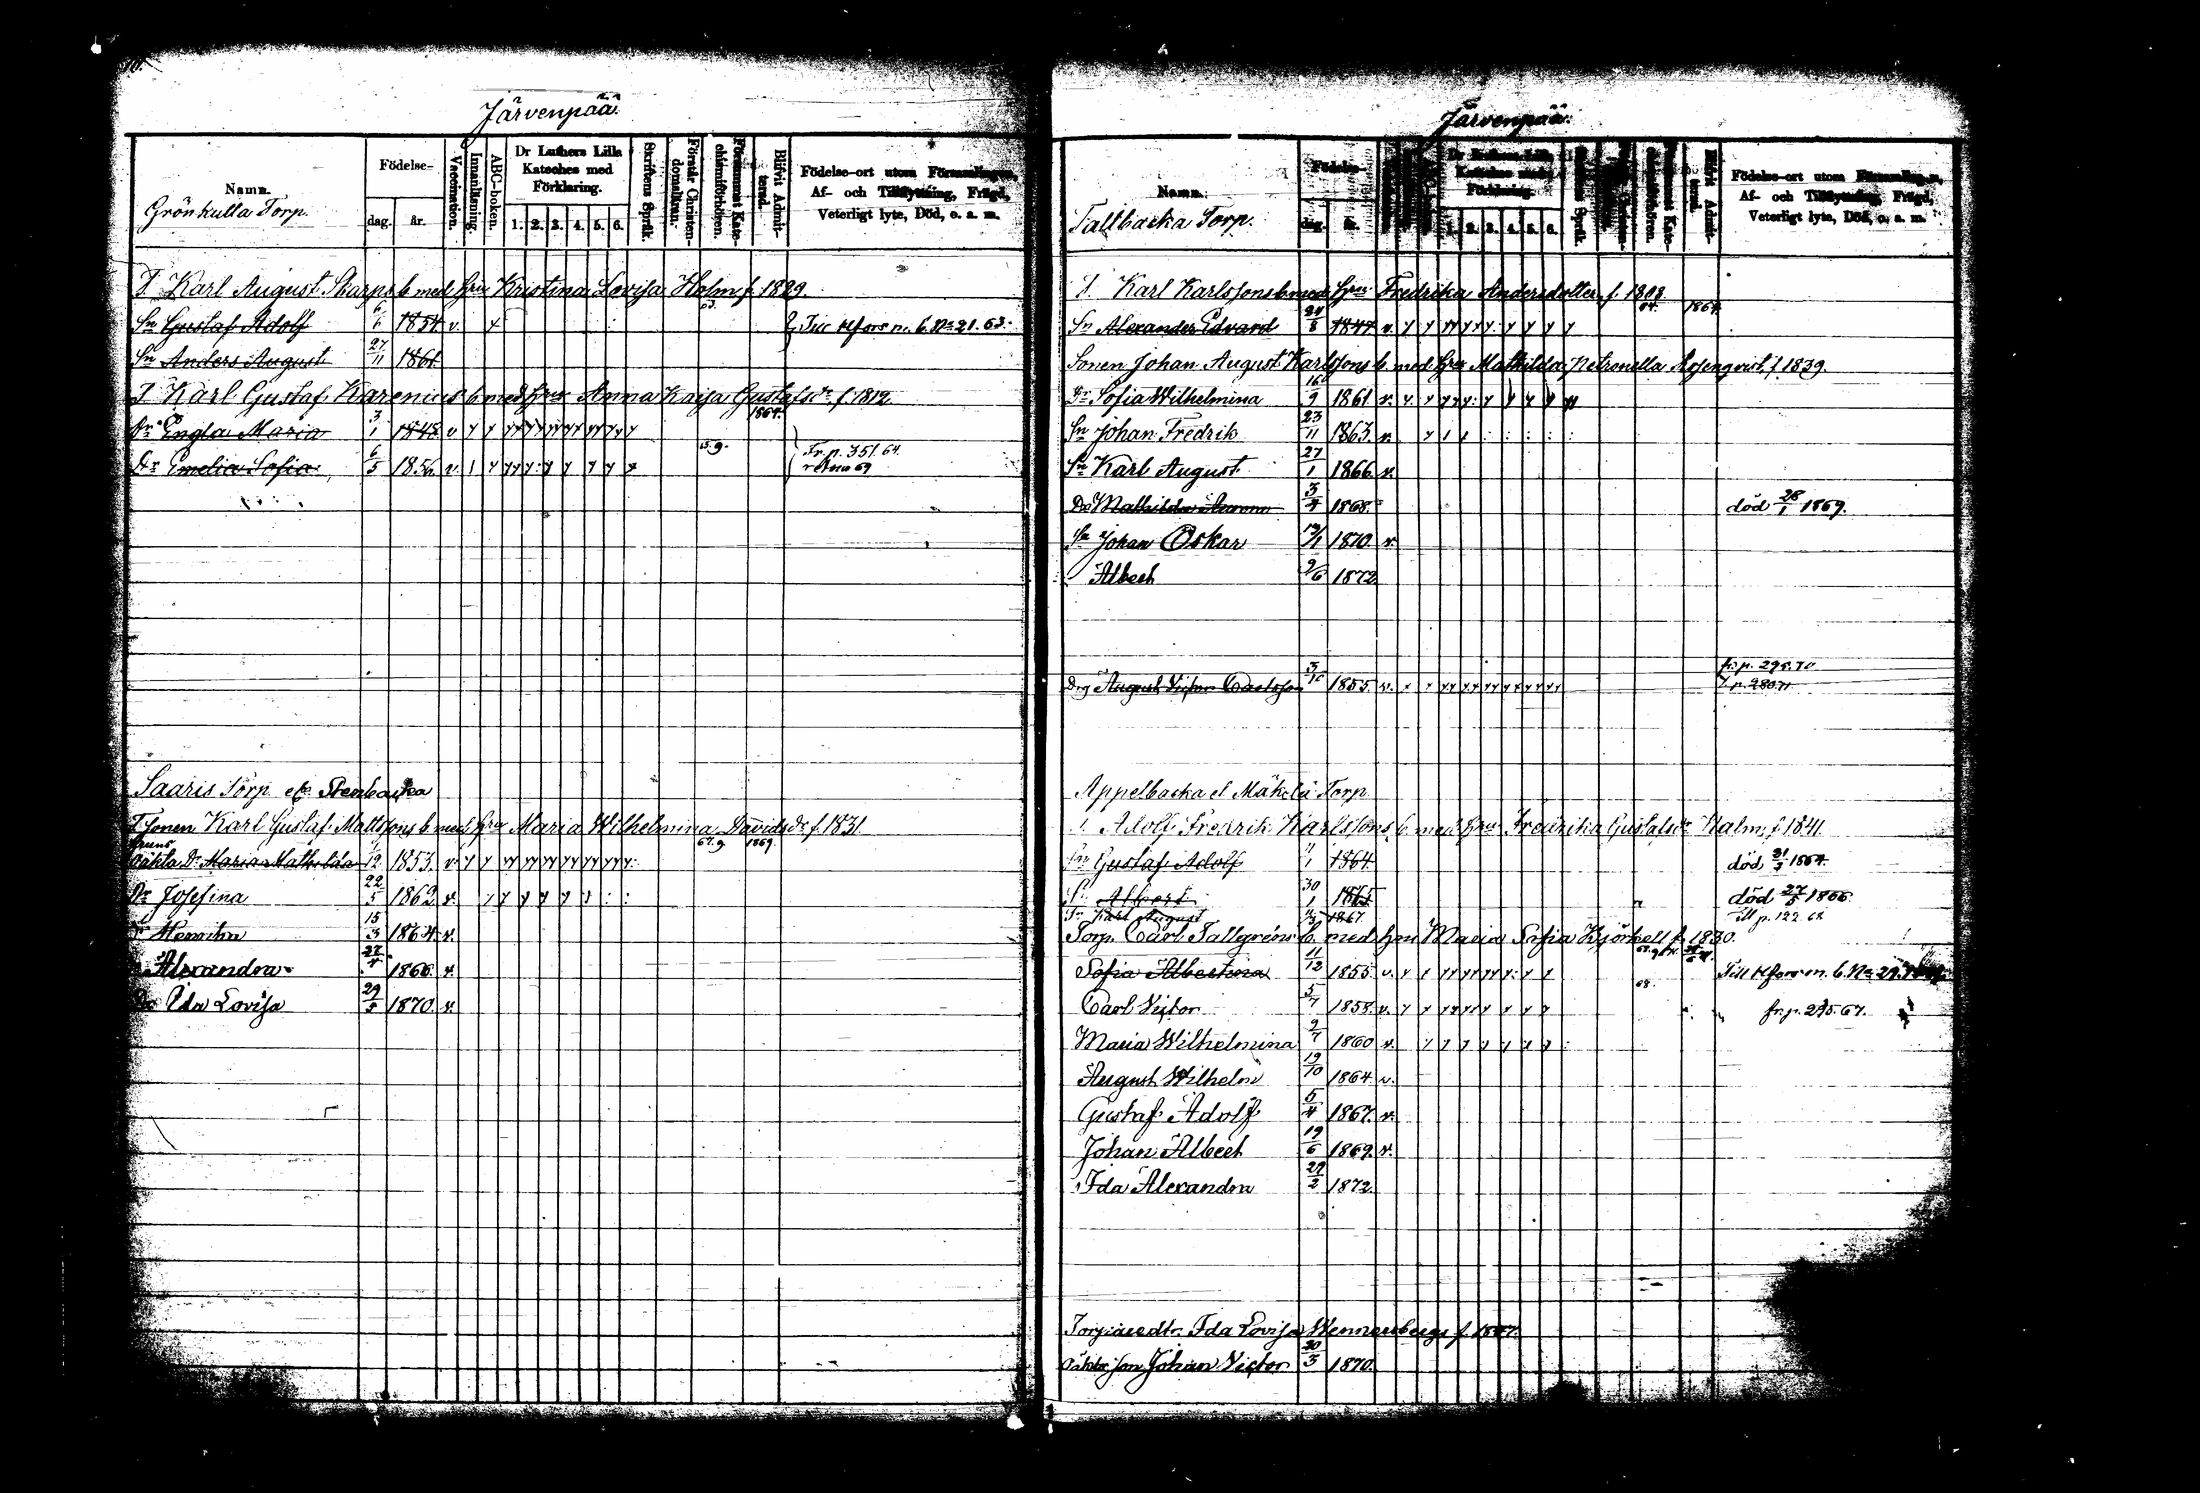 Järvenpää.
Namn.
Grönkulla Torp.
Födelse-
dag. år.
Vaccination.
Innanläsning.
ABC-boken.
Dr Luthers Lilla Kateches med Förklaring.
1. 2. 3. 4. 5. 6.
Skriftens Språk.
Förstår Christendomsläran.
Försummat Katechismiförhören.
Blifvit Admitterad.
Födelse-ort utom Församlingen, Af- och Tillflyttning, Frägd, Veterligt lyte, Död, o. a. m.
T. Karl August Skarps b. med hru Kristina Lovisa Holm f. 1829.
63.
Sn Gustaf Adolf 6/6 1854 v. Till Hfors n. 6. No 21. 63.
Sn Anders August 27/11 1861.
T Karl Gustaf Karenius b med hru Anna Kaisa Gustafsdr f. 1812
1864.
Dr Engla Maria 3/1 1848 v
Dr Emelia Sofia 6/5 1856. v. Fr. p. 351. 64.
Saaris Torp Stenbacka
T sonen Karl Gustaf Mattssons b. med hru Maria Wilhelmina Davidsdr f. 1831
67. g 1869.
oäkta Dr Maria Mathilda 12 1853. v.
Dr Josefina 22/5 1862 v.
Dr Henrika 15/3 1864. v.
Alexandra 22/4 1866 v.
Dr Ida Lovisa 29/5 1870. v.
Järvenpää.
Namn.
Tallbacka Torp.
Födelse-
dag. år.
Dr Luthers Lilla Kateches med Förklaring.
1. 2. 3. 4. 5. 6.
Skriftens Språk.
Födelse-ort utom Församlingen, Af- och Tillflyttning, Frägd, Veterligt lyte, Död, o. a. m.
T. Karl Karlssons b med hru Fredrika Andersdotter f. 1808
64. 1864.
Sn Alexander Edvard 24/8 1847 v.
Sonen Johan August Karlssons b. med hru Mathilda Petronella Rosenqvist f. 1839.
Dr Sofia Wilhelmina 16/9 1861 v.
Sn Johan Fredrik 23/11 1863. v.
Sn Karl August 27/1 1866 v.
Dr Mathilda 3/4 1868. död 28/1 1869.
Sn Johan Oskar 1870 v.
Albert 9/6 1872
fr. p. 295. 70
Drg August Victor Carlsson 3/10 1855. v. T. p. 280. 71
Appelbacka el Mäkelä Torp
T. Adolf Fredrik Karlssons b med hru Fredrika Gustafsdr Malm f. 1841.
Sn Gustaf Adolf 1864. död 31/3 1864.
Sn Albert 30/1 1865 död 27/5 1866.
Sn Karl August 1867 Till p. 122. 68
Torp. Carl Tallgréns b. med hru Maria Sofia Björkell f. 1830.
Sofia Albertina 11/12 1855 v. Till Hfors n. 6. No 29.
68.
Carl Victor 5/7 1858. v. fr. p. 295. 67.
Maria Wilhelmina 9/7 1860 v.
August Wilhelm 19/10 1864 v.
Gustaf Adolf 5/4 1867. v.
Johan Albert 19/6 1869. v.
Ida Alexandra 29/2 1872.
Torparedtr. Ida Lovisa Wennersbergs f. 1847.
Oäkta son Johan Victor 30/3 1870.